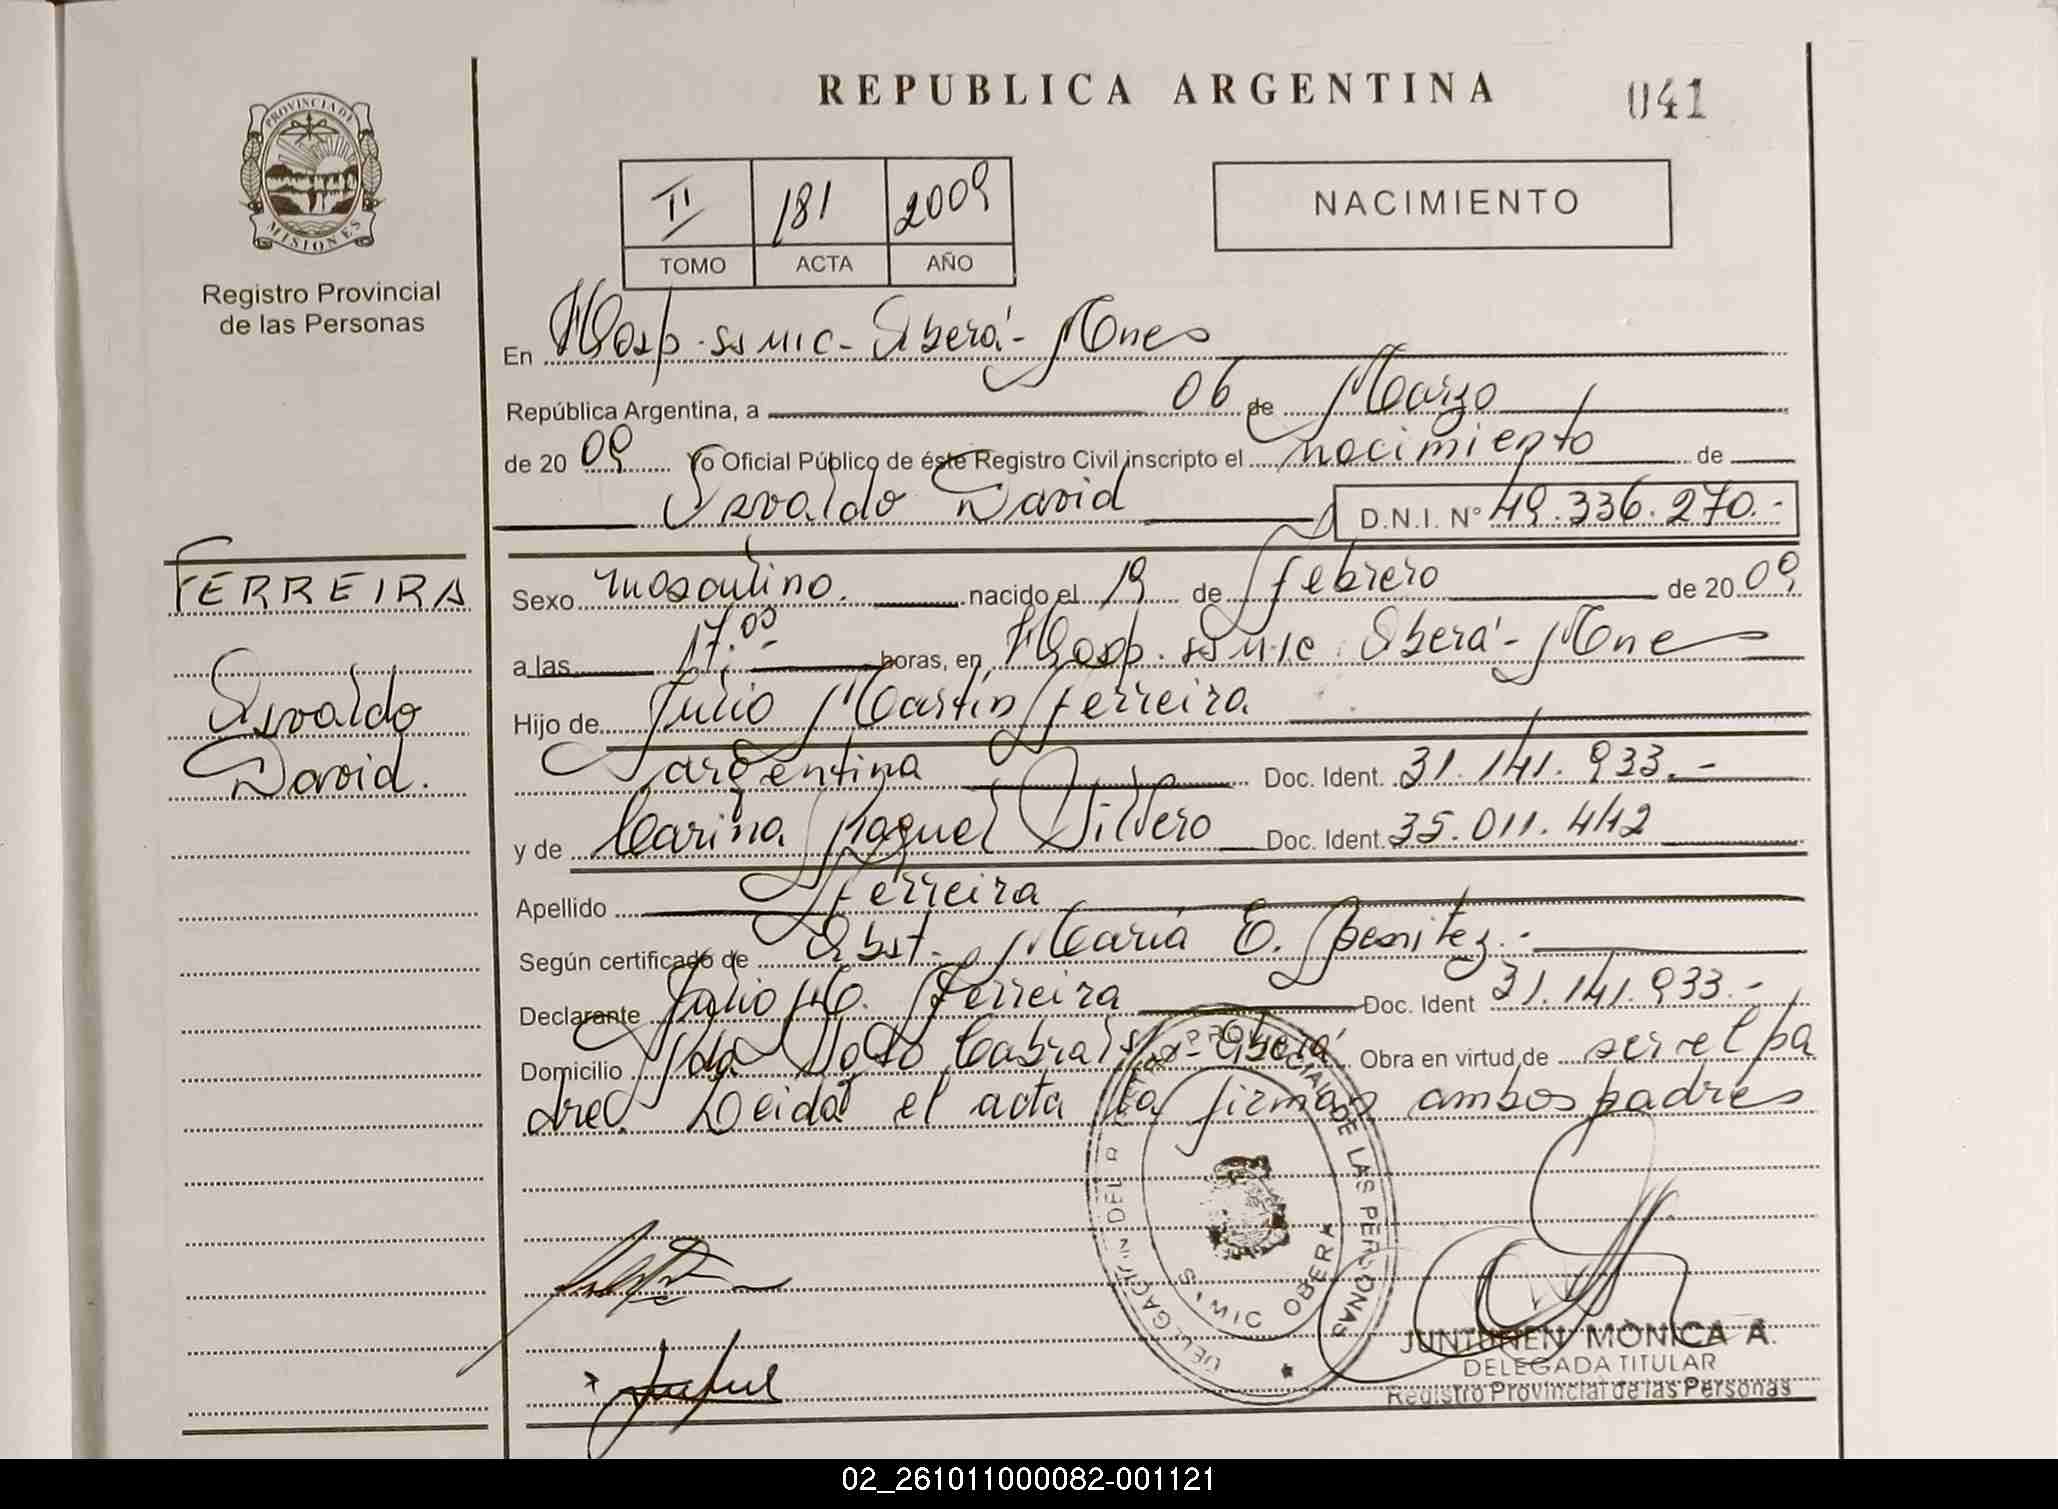 REPUBLICA ARGENTINA
041
PROVINCIA DE
MISIONES
Registro Provincial
de las Personas
II 181 2009
TOMO ACTA AÑO
NACIMIENTO
En Hosp. SSMIC - Oberá - Mnes
República Argentina, a 06 de Marzo
de 2009 Yo Oficial Público de éste Registro Civil inscripto el nacimiento de
Osvaldo David D.N.I. Nº 49.336.270.-
FERREIRA
Osvaldo
David.
Sexo masculino. nacido el 19 de febrero de 2009
a las 17.00 horas, en Hosp. SSMIC. Oberá - Mnes
Hijo de Julio Martín Ferreira
argentina Doc. Ident. 31.141.933.-
y de Carina Raquel Silvero Doc. Ident. 35.011.442
Apellido Ferreira
Según certificado de Obst. María E. Benitez.-
Declarante Julio M. Ferreira Doc. Ident 31.141.933.-
Domicilio Cabral Oberá Obra en virtud de ser el pa
dre. Leida el acta la firman ambos padres
DELEGACIÓN DEL REGISTRO PROVINCIAL DE LAS PERSONAS
OBERA
JUNTUNEN MÓNICA A.
DELEGADA TITULAR
Registro Provincial de las Personas
02_261011000082-001121